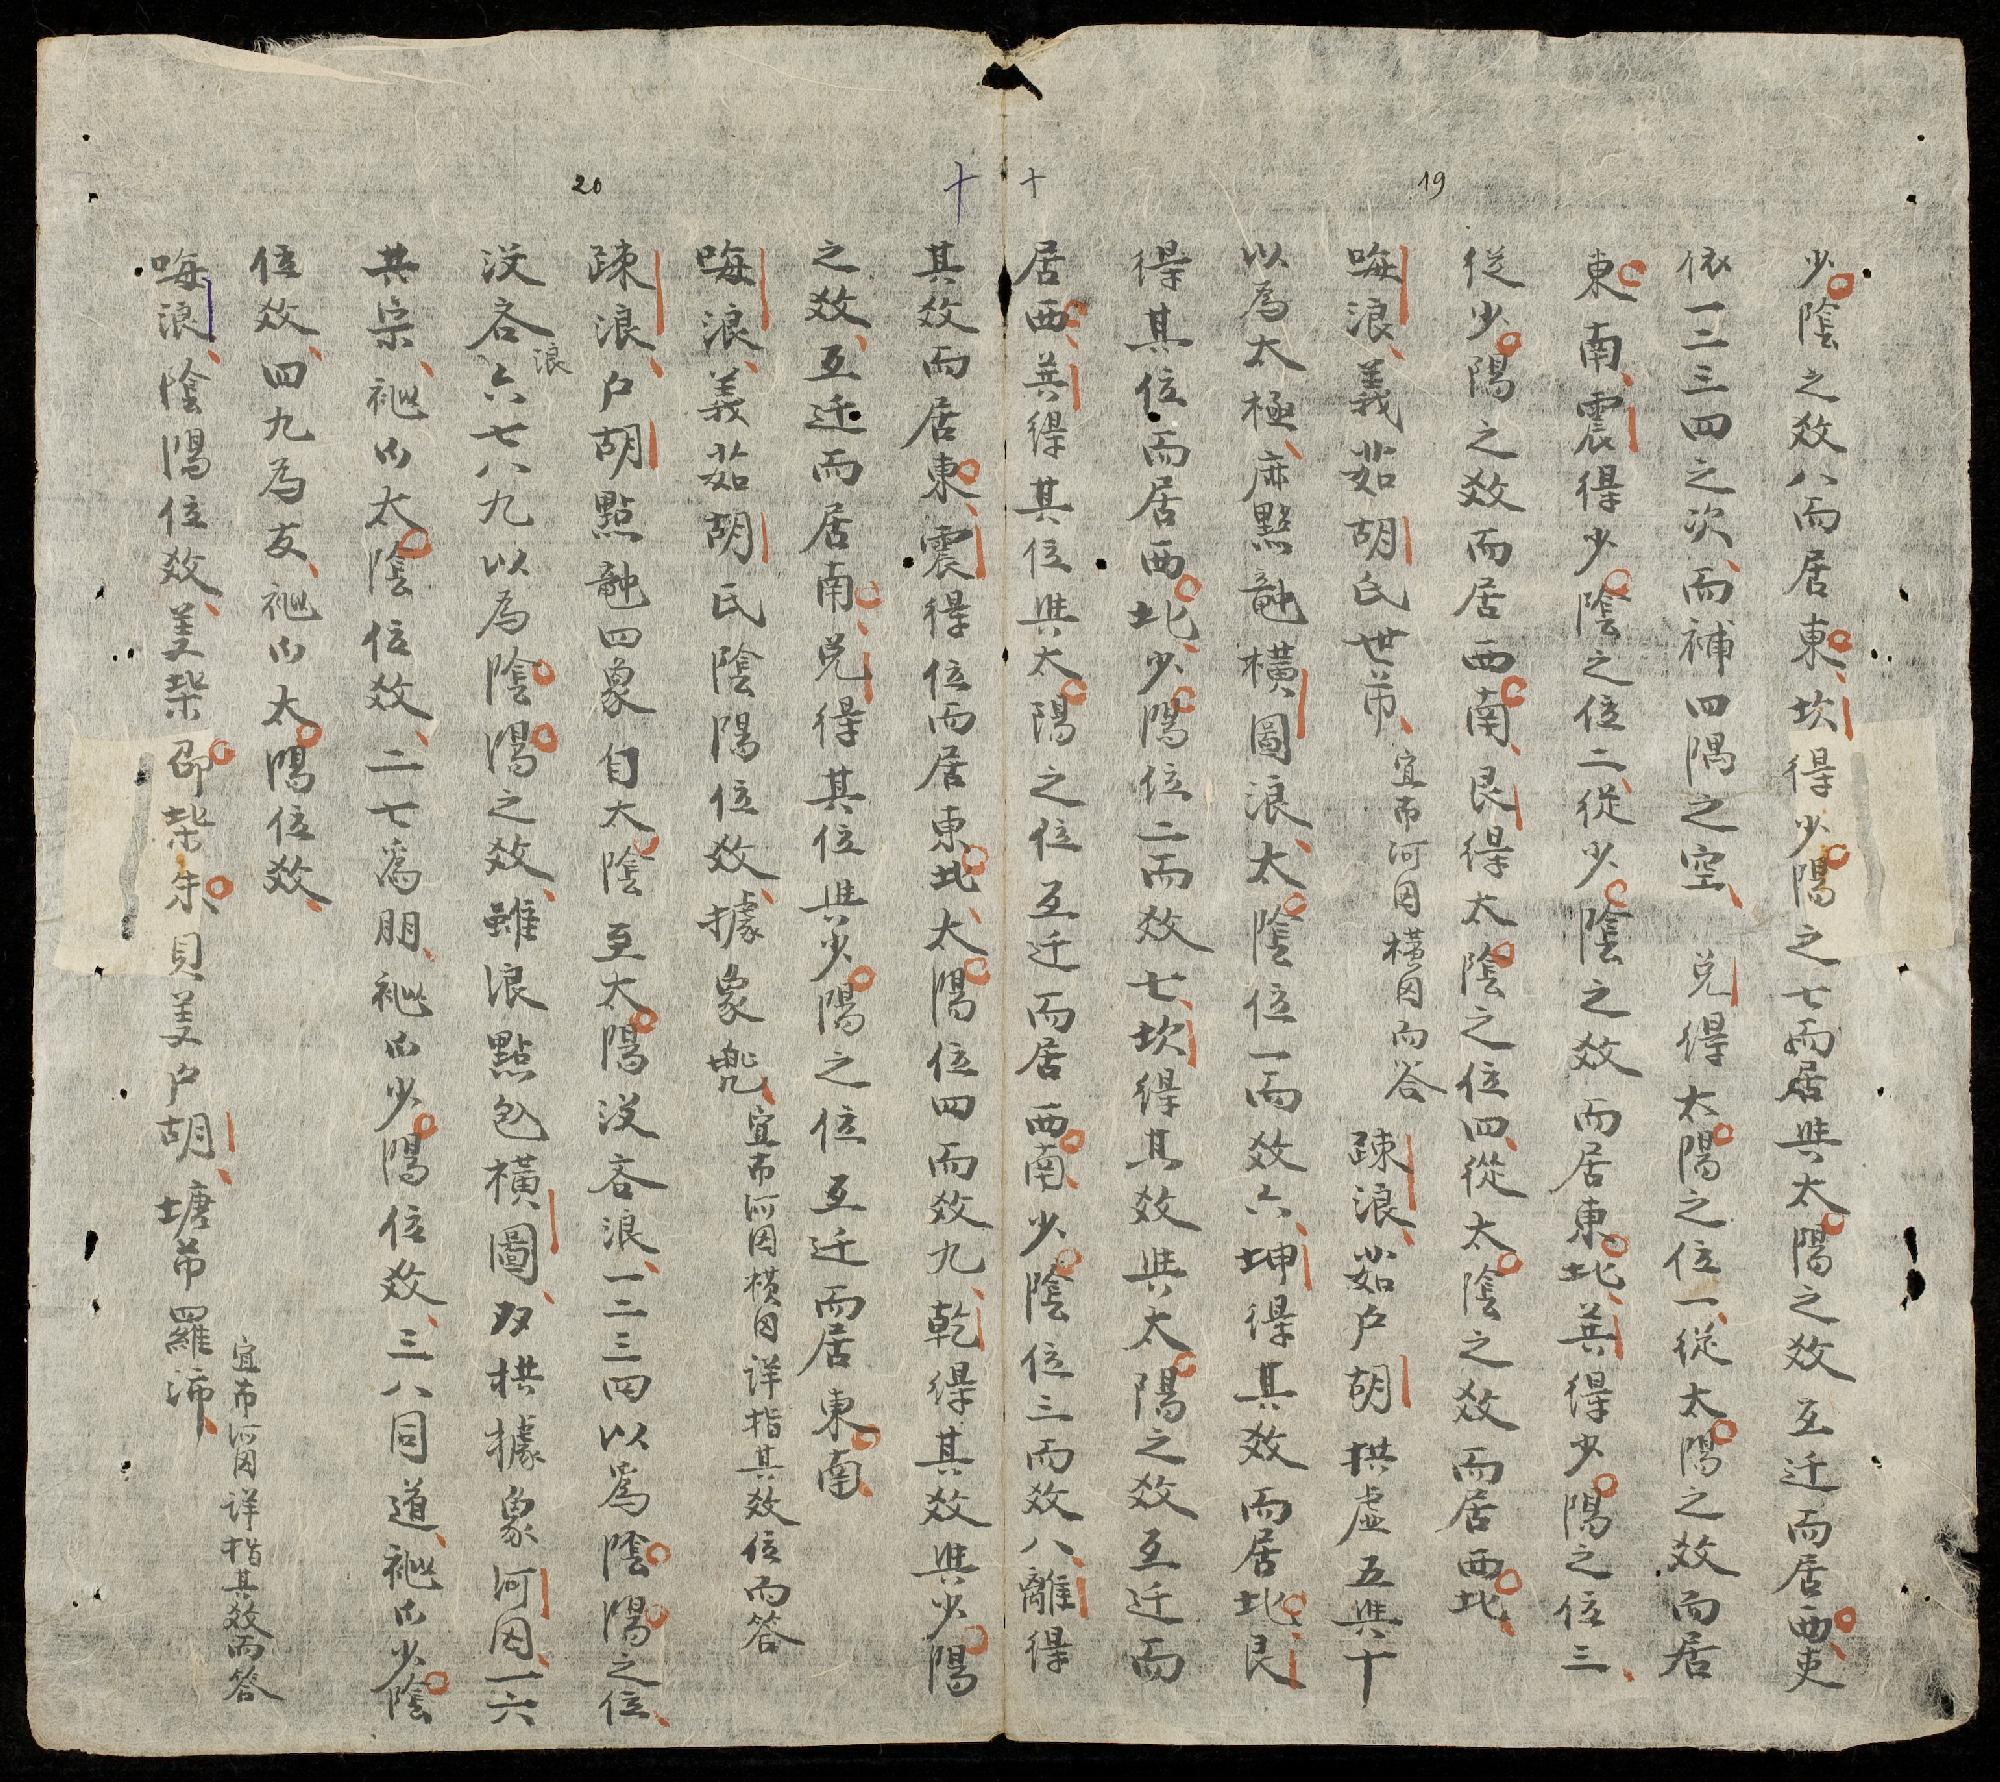 19
少陰之效八而居東坎得少陽之七而居與太陽之效互迁而居西吏
依一二三四之次而補四隅之空兌得太陽之位一從太陽之效而居
東南震得少陰之位二從少陰之效而居東北巽得少陽之位三
從少陽之效而居西南艮得太陰之位四從太陰之效而居西北
㖼浪義茹胡氏世帀宜布河図横図而答疎浪茹户胡拱虛五與十
以為太極麻點 橫圖浪太陰位一而效六坤得其效而居北艮
得其位而居西北少陽位二而效七坎得其效與太陽之效互迁而
居西巽得其位與太陽之位互迁而居西南少陰位三而效八離得
十
十
20
其效而居東震得位而居東北太陽位四而效九乾得其效與少陽
之效互迁而居南兌得其位與少陽之位互迁而居東南
㖼浪義茹胡氏陰陽位效據象 宜布河図横図详指其效位而答
疎浪户胡點 四象自太陰至太陽沒吝浪一二三四以為陰陽之位
沒吝浪六七八九以為陰陽之效雖浪點包橫圖 拱據象河図一六
共宗 太陰位效二七爲朋 少陽位效三八同道 少陰
位效四九為友 太陽位效
㖼浪陰陽位效 邵 朱貝 户胡塘希羅 宜布河図详指其效而答